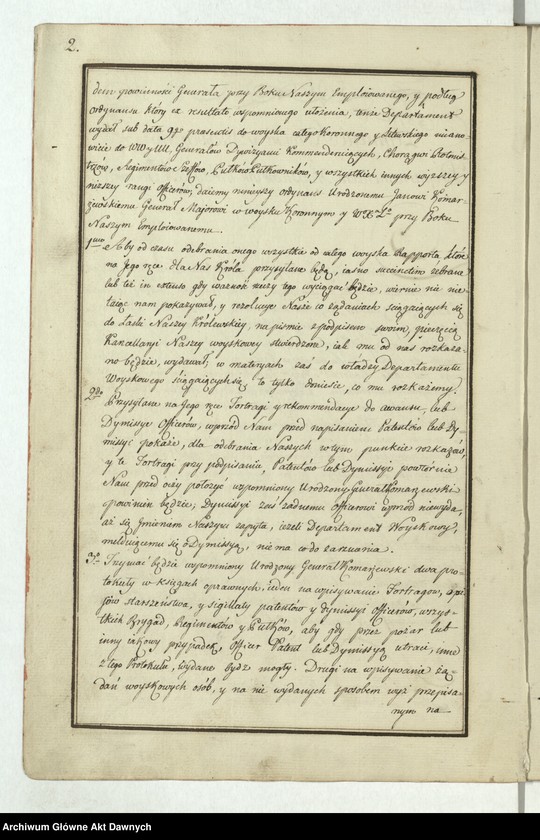 2.
dem powinności Generała przy Boku Naszym Emploiowanego, y podług
Ordynansu który ex resultato wspomnionego ułożenia, tenże Departament
wydał sub data 9na praesentis do woyska całego Koronnego y Litewskiego miano-
wicie do WW y UU, Generałów Dywizyami Kommenderuiących, Chorągwi Rotmis-
trzów, Regimentów Szeffów, Pułków Pułkowników, y wszystkich innych wyższey y
niższey rangi officerów, daiemy ninieyszy ordynans Urodzonemu Janowi Komar-
zewskiemu Generał Majorowi w woysku Koronnym y W. X. Lit. przy Boku
Naszym Emploiowanemu.
1mo Aby od czasu odebrania onego wszystkie od całego woyska Rapporta, które
na Jego ręce dla Nas Króla przysyłane będą, iasno succinctim zebrane
lub też in extenso gdy ważność rzeczy tego wyciągać będzie, wiernie nic nie-
taiąc nam pokazywał, y rezolucye Nasze co żądaniach sciągaiących się
do Łaski Naszey Królewskiey, na piśmie z podpisem swoim, pieczęcią
Kancellaryi Naszey woyskowey stwierdzone, iak mu od nas rozkaza-
no będzie, wydawał, w materyach zaś do władzy Departamentu
Woyskowego sciągaiących się to tylko doniesie, co mu rozkażemy.
2do Przysyłane na Jego ręce Fortragi y rekommendacye do awansu, lub
Dymissye Officerów, wprzód Nam przed napisaniem Patentów lub Dy-
missyi pokaże, dla odebrania Naszych w tym punkcie rozkazów,
y te Fortragi przy podpisaniu, Patentów lub Dymissyi powtórnie
Nam przed oczy położyć wspomniony Urodzony Generał Komarzewski
powinien będzie, Dymissyi zaś żadnemu officerowi wprzód niewyda,
aż się Imieniem Naszym zapyta, ieżeli Departament Woyskowy,
melduiącemu się o Dymissyą, nie ma co do zarzucania.
3tio Trzymać będzie wspomniony Urodzony Generał Komarzewski dwa pro-
tokuły w księgach oprawnych, ieden na wpisywanie Fortragow, opi-
sów starszeństwa, y Sigillaty patentów y dymissyi officerów, wszys-
tkich Brygad, Regimentów y Pułków, aby gdy przez pożar lub
inny iakowy przypadek, officer Patent lub Dymissyą utraci, inne
z tego Protokułu, wydane bydź mogły. Drugi na wpisywanie żą-
dań woyskowych osób, y na nie wydanych sposobem wyż przepisa-
nym na
Archiwum Główne Akt Dawnych